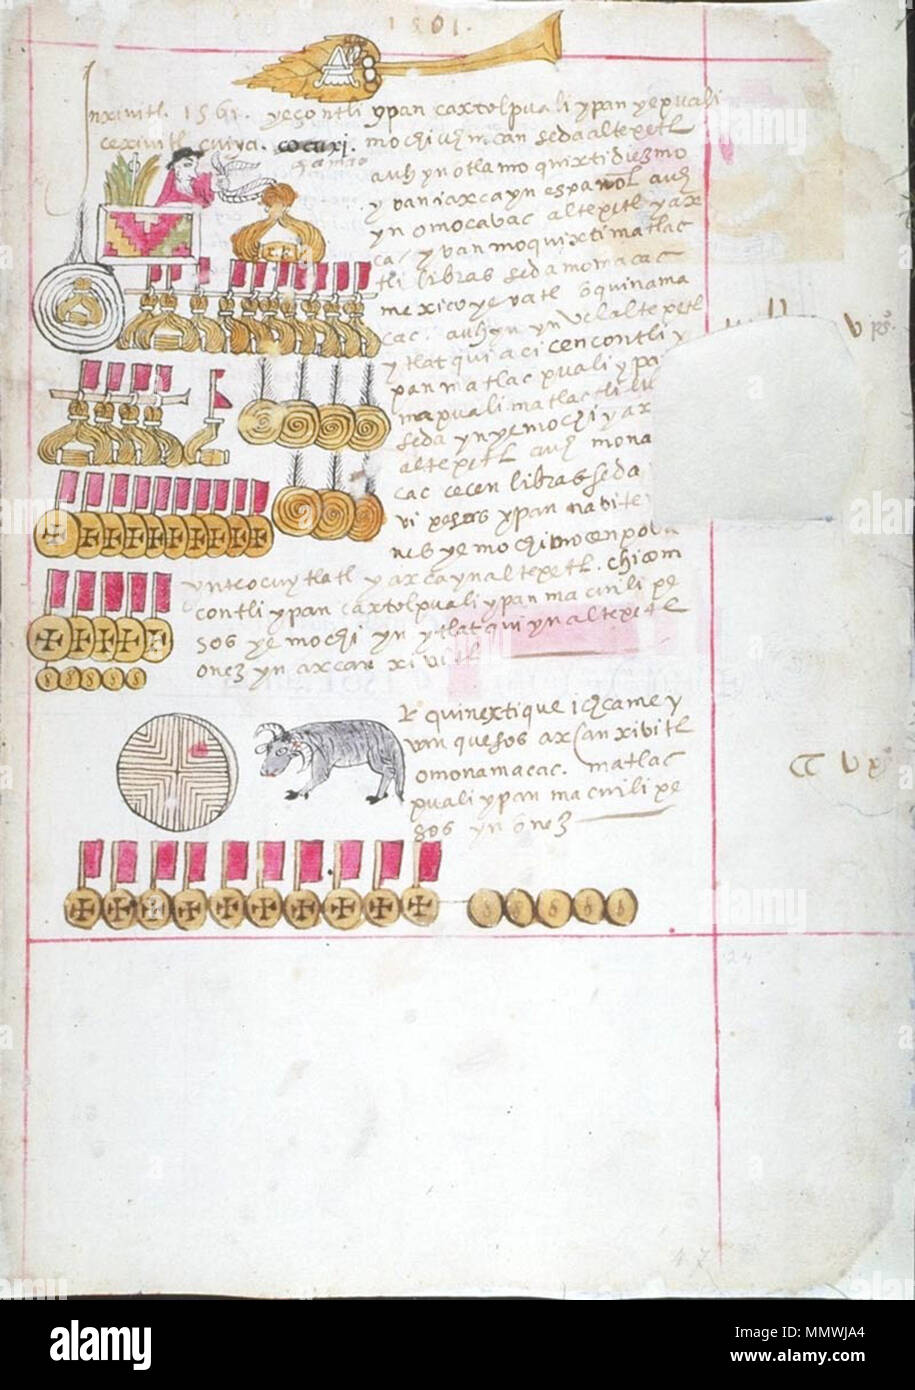 1561.
Inxivitl. 1561. yeçontli ypan caxtolpuali ypan yepuali
cexivitl cuiya. mochiuh in can seda altepetl
auh ynotlamo quixti diezmo
yvan iaxca yn español auh
yn omocavac altepetl yax
ca / yvan moquixti matlac
tli libras seda momacac
mexico ye vatl oquinama
cac. auh yn altepetl
ytlatqui aci cencontli y
pan matlac puali ypa
mapuali matlactli
seda yn ye mochi yax
altepetl auh mona
cac cecen libras seda
vi pesos ypan navi te
nes ye mochi mocenpova
yn teocuytlatl yaxca yn altepetl. chicom
contli ypan caxtolpuali ypan macuili pe
sos ye mochi yn ytlatqui yn altepetl
onez yn axcan xivitl
quinextique ichcame y
van quesos axcan xivitl
omonamacac. matlac
puali ypan macuili pe
sos yn onez
alamy
Image ID: MMWJA4
www.alamy.com